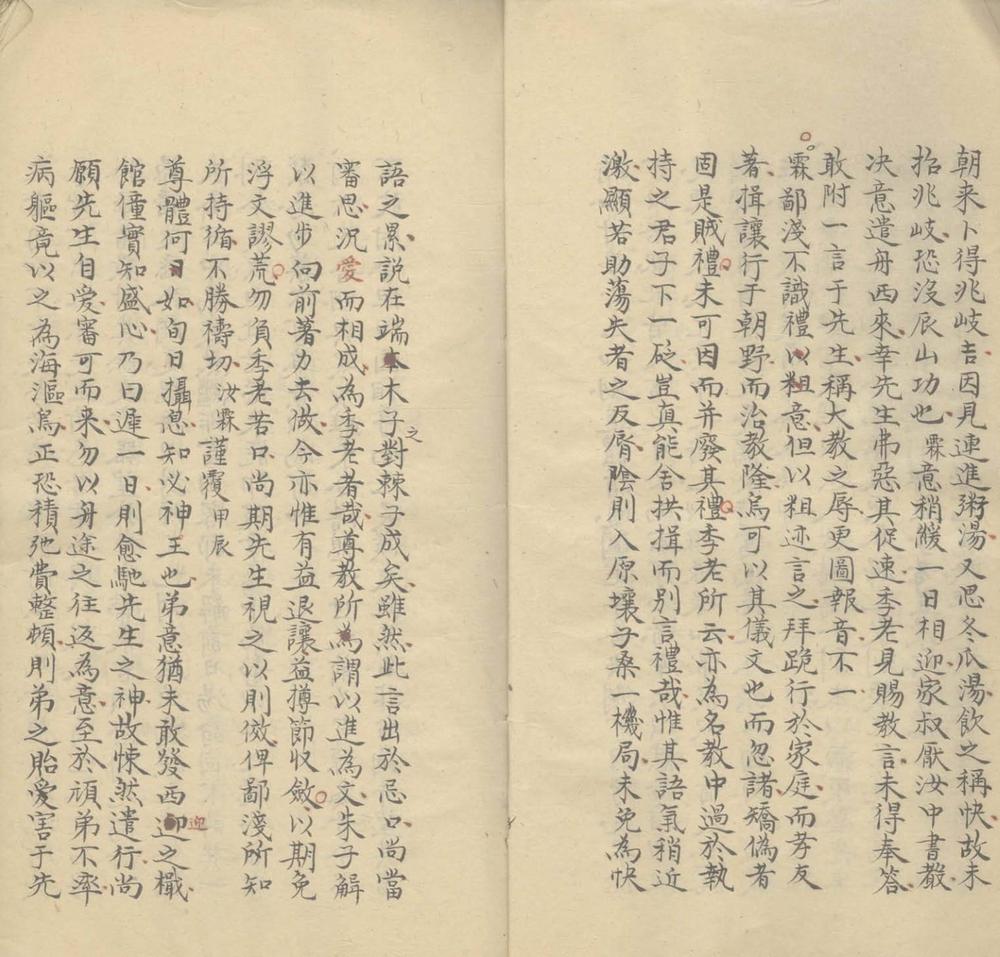 朝来卜得兆岐吉因見連進粥湯又思冬瓜湯飲之稱快故未
招兆岐恐沒辰山功也霖意稍緩一日相迎家叔厭汝中書教
决意遣舟西來幸先生弗惡其促速季老見賜教言未得奉答
敢附一言于先生稱大教之辱更圖報音不一
霖鄙淺不識禮以粗意但以粗迹言之拜跪行於家庭而孝友
著揖讓行于朝野而治教隆烏可以其儀文也而忽諸矯偽者
固是賊禮未可因而并廢其禮季老所云亦為名教中過於執
持之君子下一砭豈真能舍拱揖而別言禮哉惟其語氣稍近
激顯若助蕩失者之反脣陰則入原壤子桑一機局未免為快
語之累説在端本木子之對棘子成矣雖然此言出於忌口尚當
審思況愛而相成為季老者哉尊教所為謂以進為文朱子解
以進步向前著力去做今亦惟有益退讓益撙節収斂以期免
浮文謬荒勿負季老若口尚期先生視之以則俲俾鄙淺所知
所持循不勝禱切汝霖謹覆甲辰
尊體何日如旬日攝息知必神王也弟意猶未敢發西迎之檝
館僮實知盛心乃曰遲一日則愈馳先生之神故悚然遣行尚
願先生自愛審可而来勿以舟途之往返為意至於頑弟不率
病軀竟以之為海漚烏正恐積弛費整頓則弟之貽愛害于先